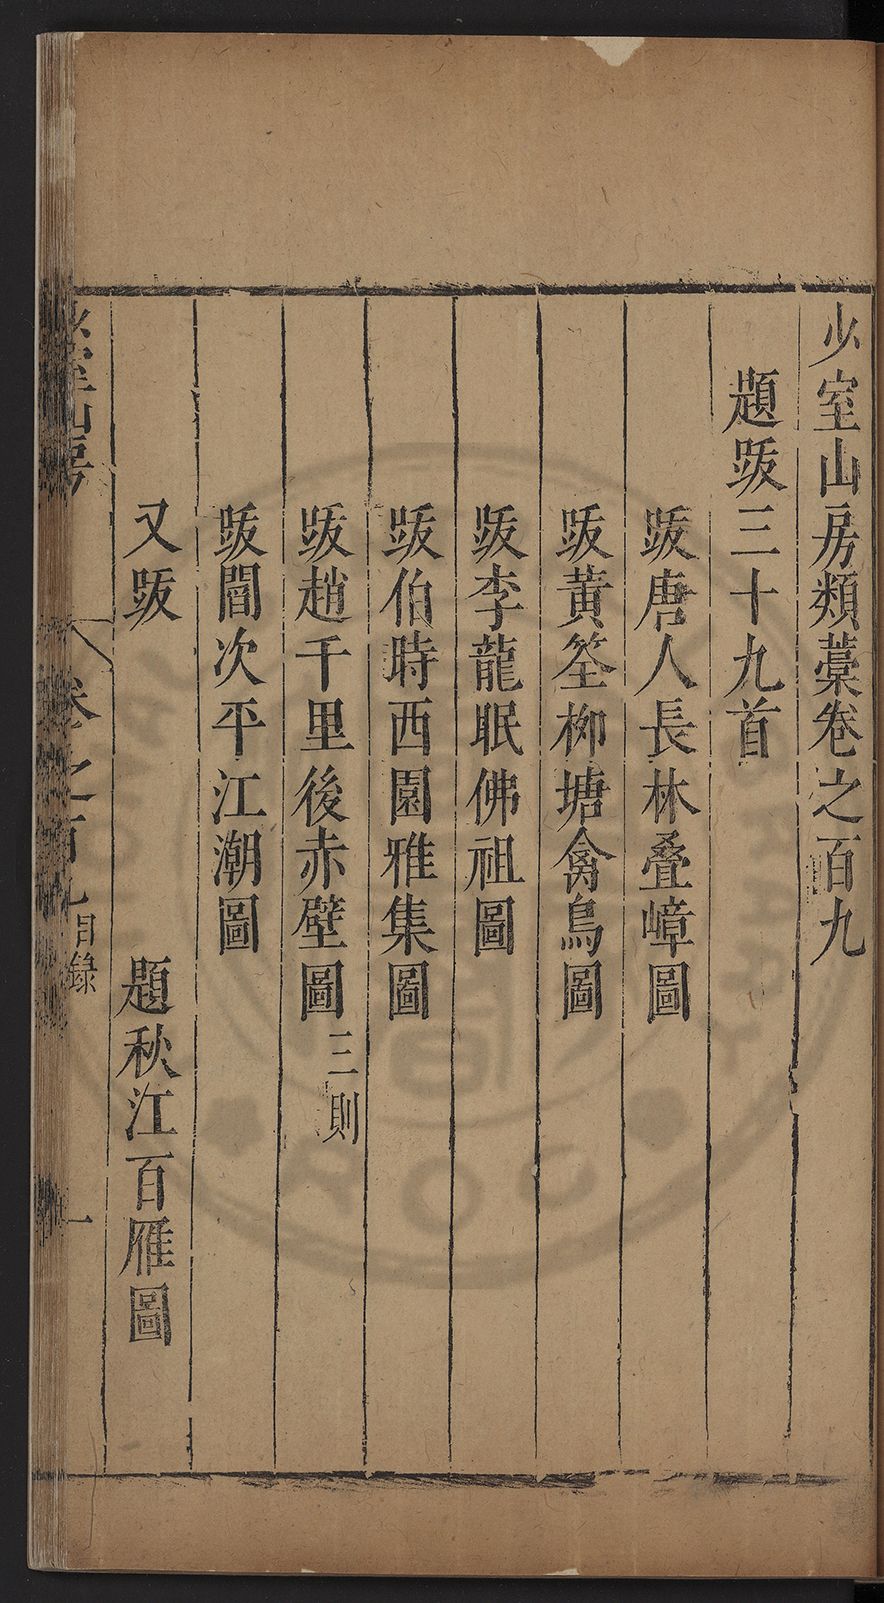 少室山房類藁卷之百九
題跋三十九首
跋唐人長林叠嶂圖
跋黃筌柳塘禽鳥圖
跋李龍眠佛祖圖
跋伯時西園雅集圖
跋趙千里後赤壁圖三則
跋閻次平江潮圖
又跋　題秋江百雁圖
少室山房　卷之百九目錄　一